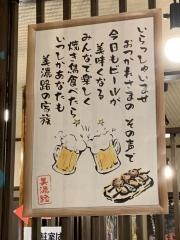 いらっしゃいませ
おつかれさまの その声で
今日もビールが
美味くなる
みんなで楽しく
焼き鳥食べたら
いつしかあなたも
美濃路の家族
美濃路